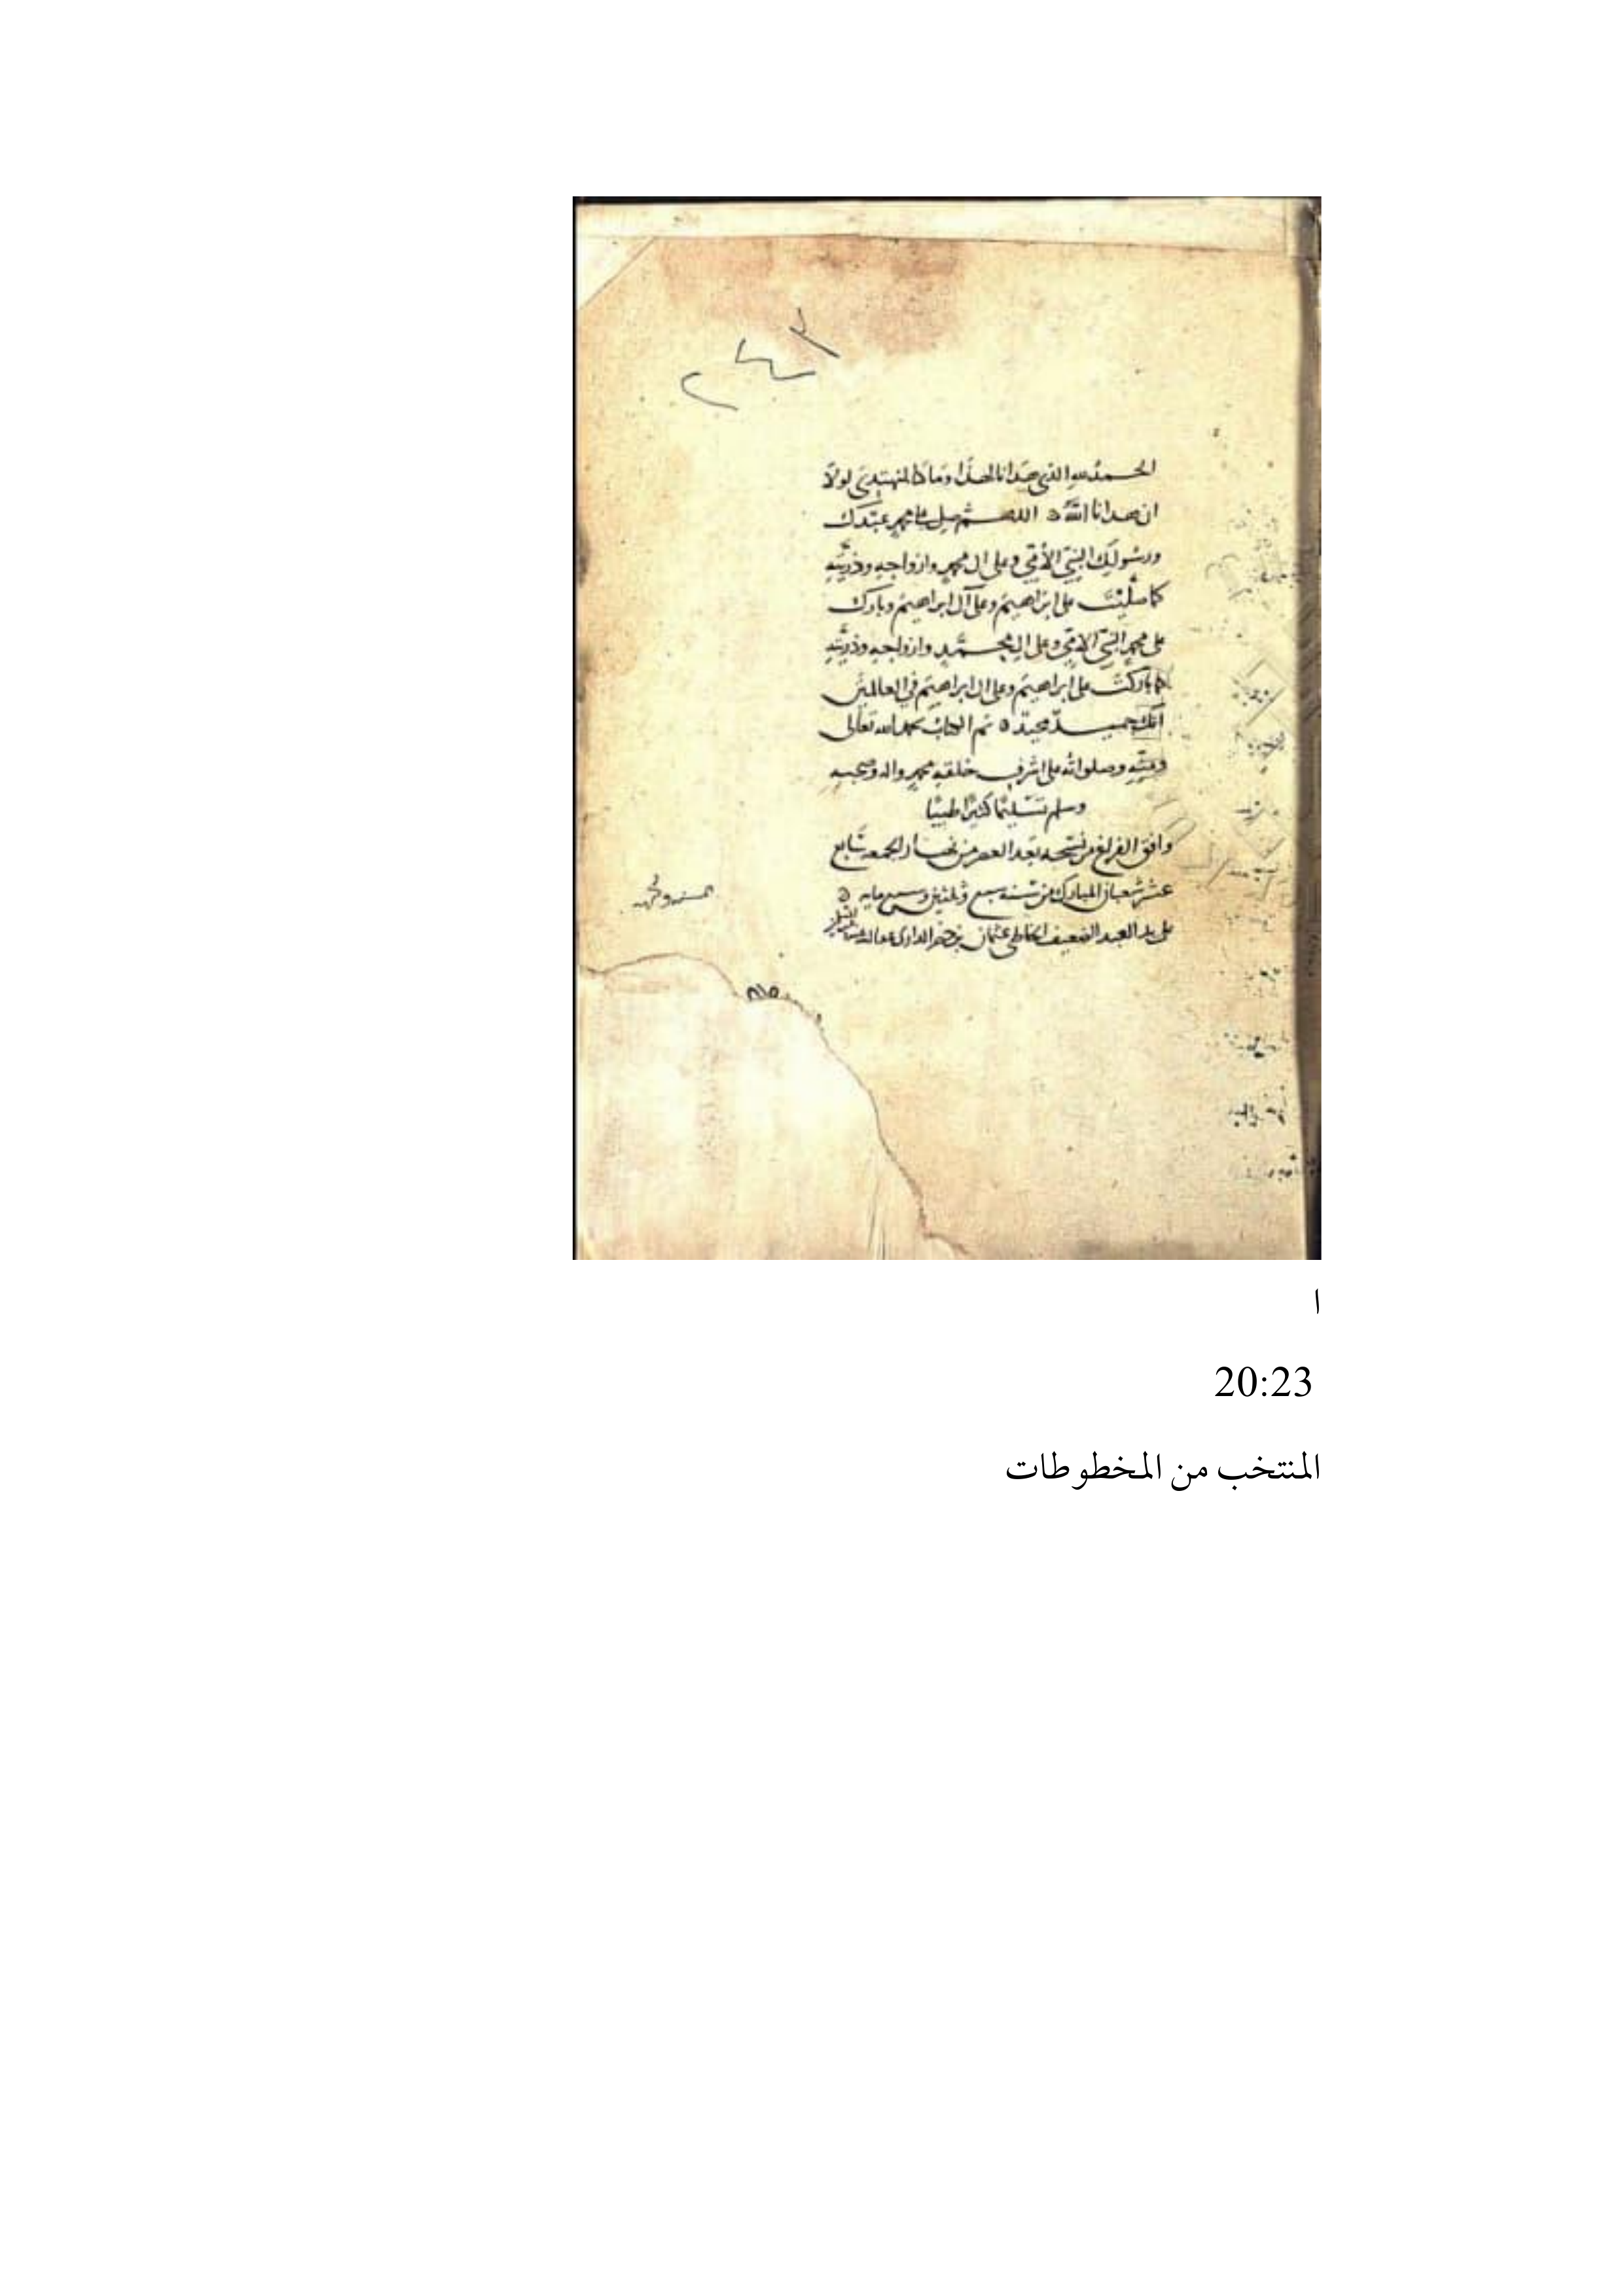 الحمد لله الذي هدانا لهذا وما كنا لنهتدي لولا
ان هدانا الله اللهم صل على محمد عبدك
ورسولك النبي الأمي وعلى ال محمد وازواجه وذريته
كما صليت على ابراهيم وعلى آل ابراهيم وبارك
على محمد النبي الامي وعلى ال محمد وازواجه وذريته
كما باركت على ابراهيم وعلى ال ابراهيم في العالمين
انك حميد مجيد تم الكتاب بحمد الله تعالى
ومنه وصلواته على اشرف خلقه محمد واله وصحبه
وسلم تسليما كثيرا طيبا
وافق الفراغ من نسخه بعد العصر من نهار الجمعة سابع
عشر شعبان المبارك من سنة سبع وثلثين وسبع مايه
على يد العبد الضعيف الخاطي عثمان بن
ا
20:23
المنتخب من المخطوطات